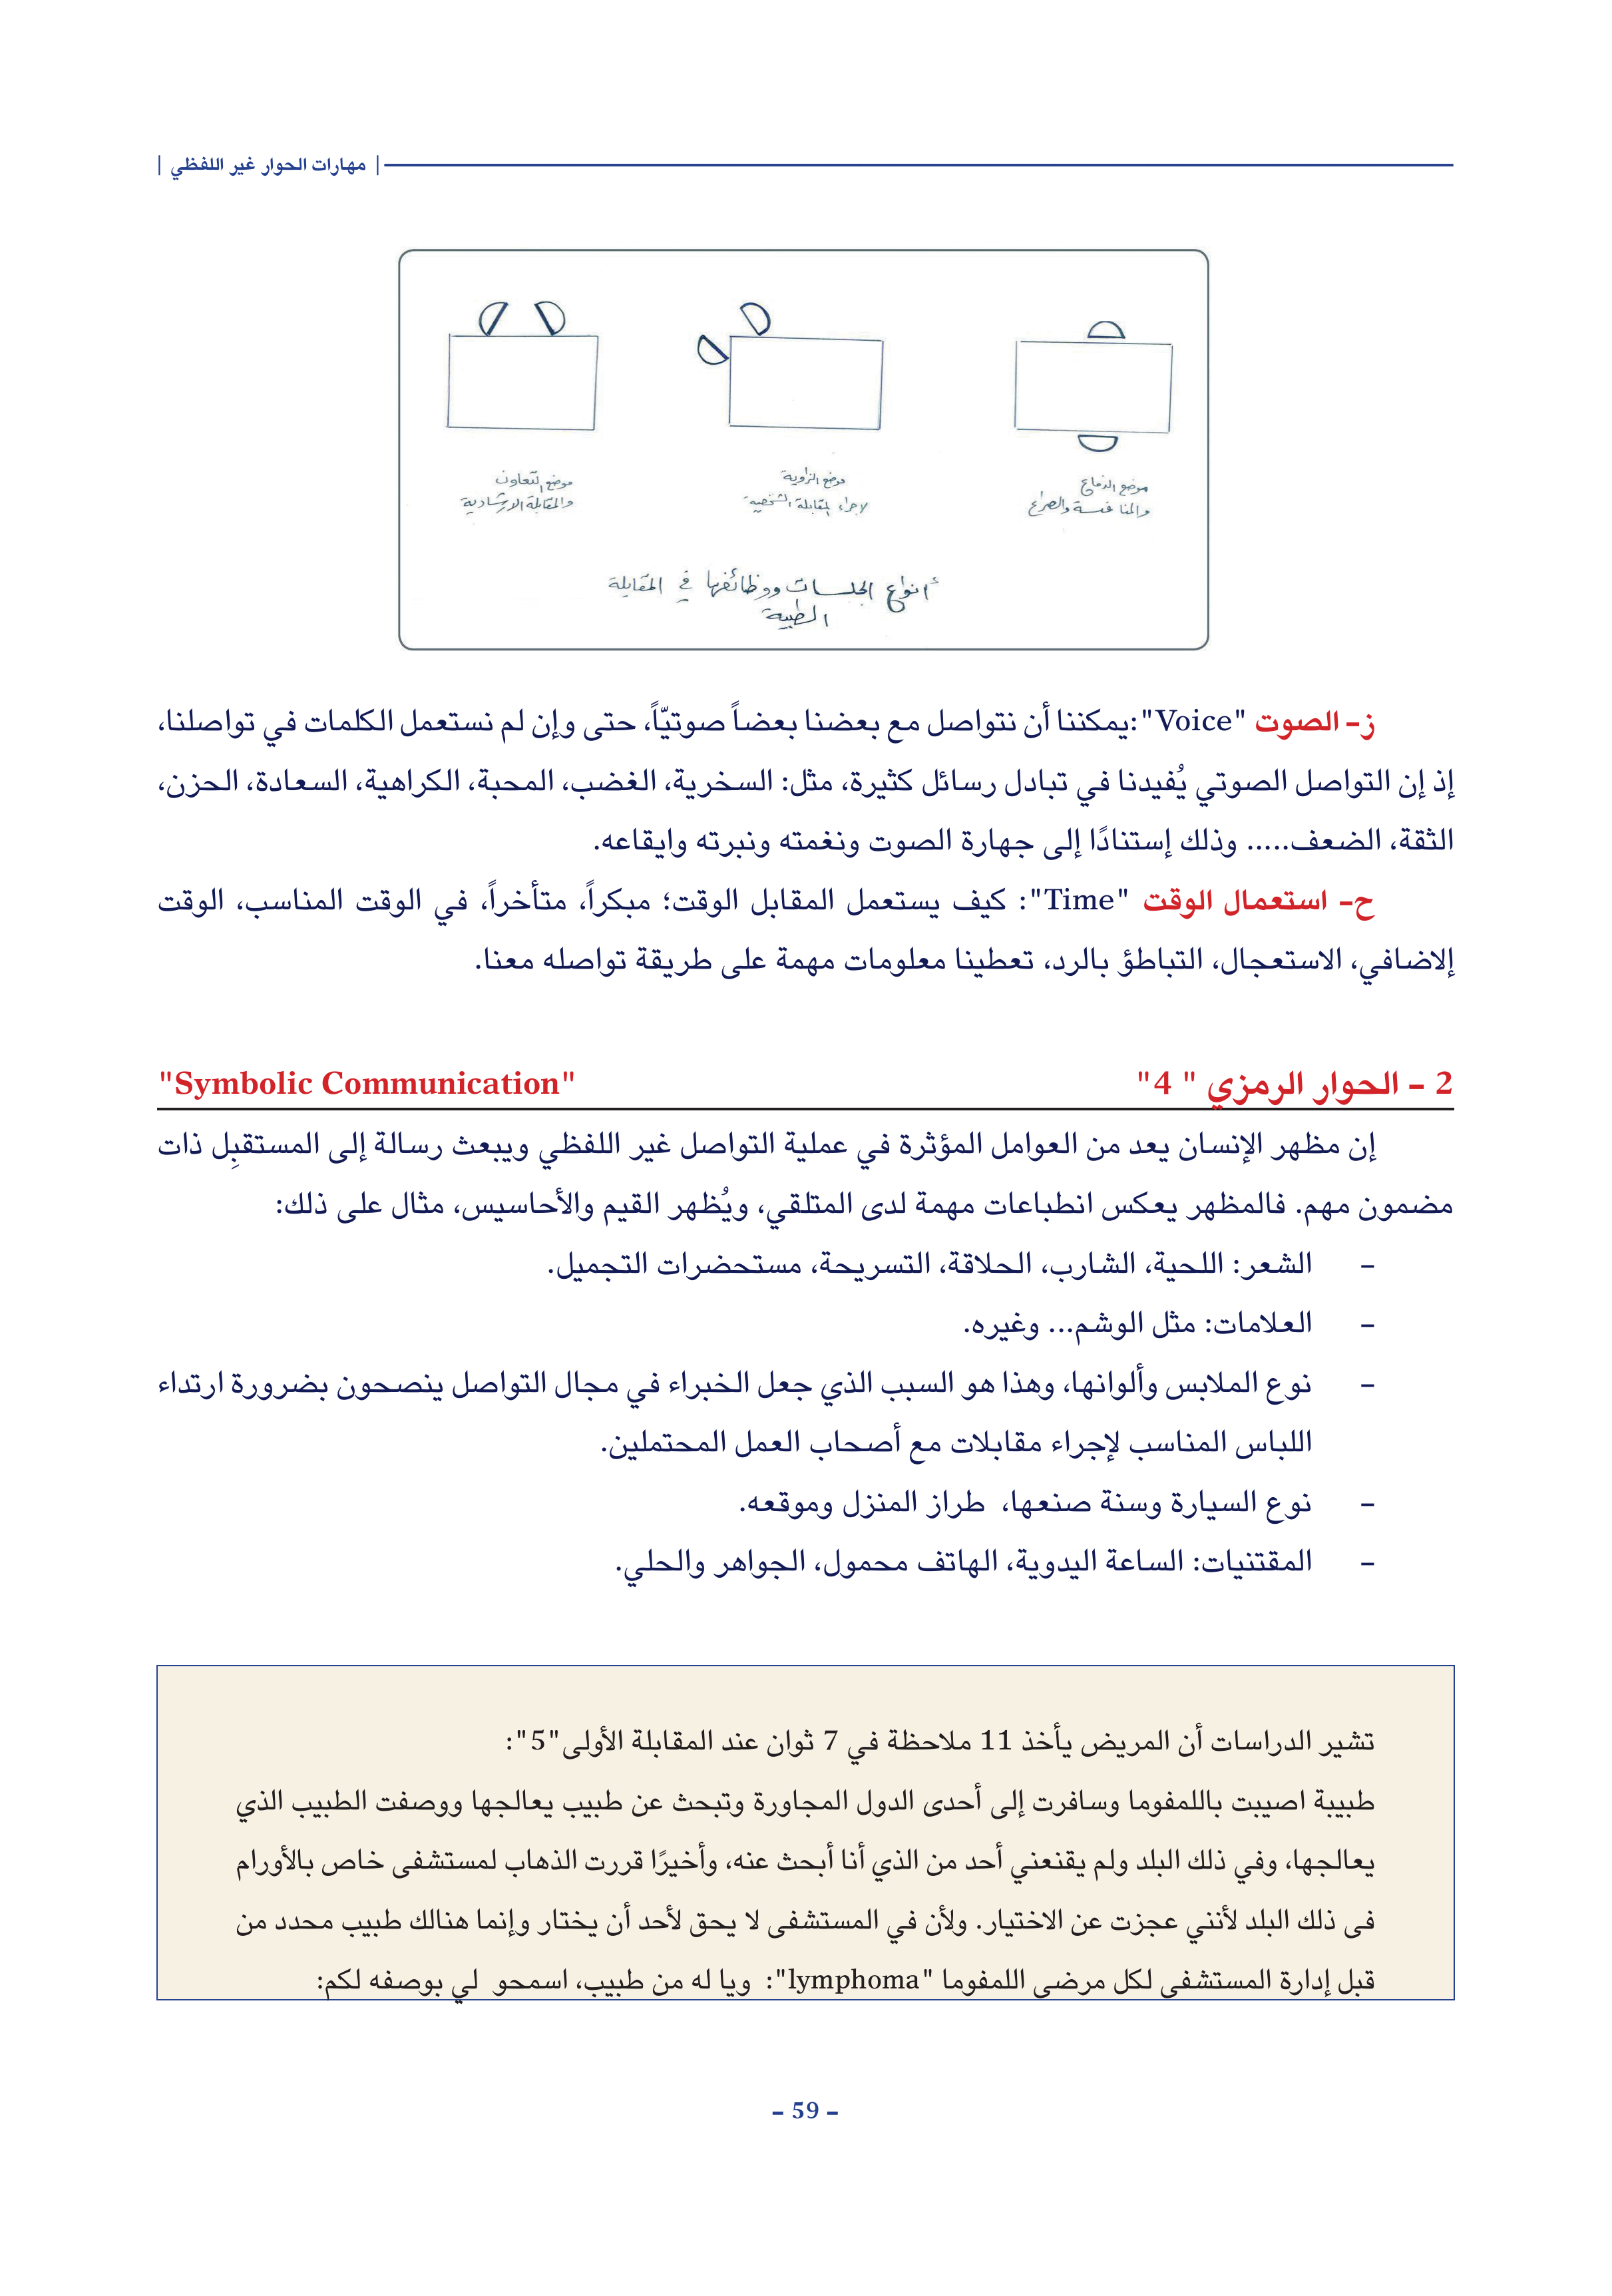 | مهارات الحوار غير اللفظي |
موضع الدفاع
والمنافسة والصراع
موضع الزاوية
لاجراء المقابلة الشخصية
موضع التعاون
والمقابلة الارشادية
أنواع الجلسات ووظائفها في المقابلة
الطبية
ز- الصوت "Voice":يمكننا أن نتواصل مع بعضنا بعضاً صوتيّاً، حتى وإن لم نستعمل الكلمات في تواصلنا،
إذ إن التواصل الصوتي يُفيدنا في تبادل رسائل كثيرة، مثل: السخرية، الغضب، المحبة، الكراهية، السعادة، الحزن،
الثقة، الضعف..... وذلك إستنادًا إلى جهارة الصوت ونغمته ونبرته وايقاعه.
ح- استعمال الوقت "Time": كيف يستعمل المقابل الوقت؛ مبكراً، متأخراً، في الوقت المناسب، الوقت
إلاضافي، الاستعجال، التباطؤ بالرد، تعطينا معلومات مهمة على طريقة تواصله معنا.
2 - الحوار الرمزي " 4" "Symbolic Communication"
إن مظهر الإنسان يعد من العوامل المؤثرة في عملية التواصل غير اللفظي ويبعث رسالة إلى المستقبِل ذات
مضمون مهم. فالمظهر يعكس انطباعات مهمة لدى المتلقي، ويُظهر القيم والأحاسيس، مثال على ذلك:
- الشعر: اللحية، الشارب، الحلاقة، التسريحة، مستحضرات التجميل.
- العلامات: مثل الوشم... وغيره.
- نوع الملابس وألوانها، وهذا هو السبب الذي جعل الخبراء في مجال التواصل ينصحون بضرورة ارتداء
اللباس المناسب لإجراء مقابلات مع أصحاب العمل المحتملين.
- نوع السيارة وسنة صنعها، طراز المنزل وموقعه.
- المقتنيات: الساعة اليدوية، الهاتف محمول، الجواهر والحلي.
تشير الدراسات أن المريض يأخذ 11 ملاحظة في 7 ثوان عند المقابلة الأولى"5":
طبيبة اصيبت باللمفوما وسافرت إلى أحدى الدول المجاورة وتبحث عن طبيب يعالجها ووصفت الطبيب الذي
يعالجها، وفي ذلك البلد ولم يقنعني أحد من الذي أنا أبحث عنه، وأخيرًا قررت الذهاب لمستشفى خاص بالأورام
فى ذلك البلد لأنني عجزت عن الاختيار. ولأن في المستشفى لا يحق لأحد أن يختار وإنما هنالك طبيب محدد من
قبل إدارة المستشفى لكل مرضى اللمفوما "lymphoma": ويا له من طبيب، اسمحو لي بوصفه لكم:
- 59 -